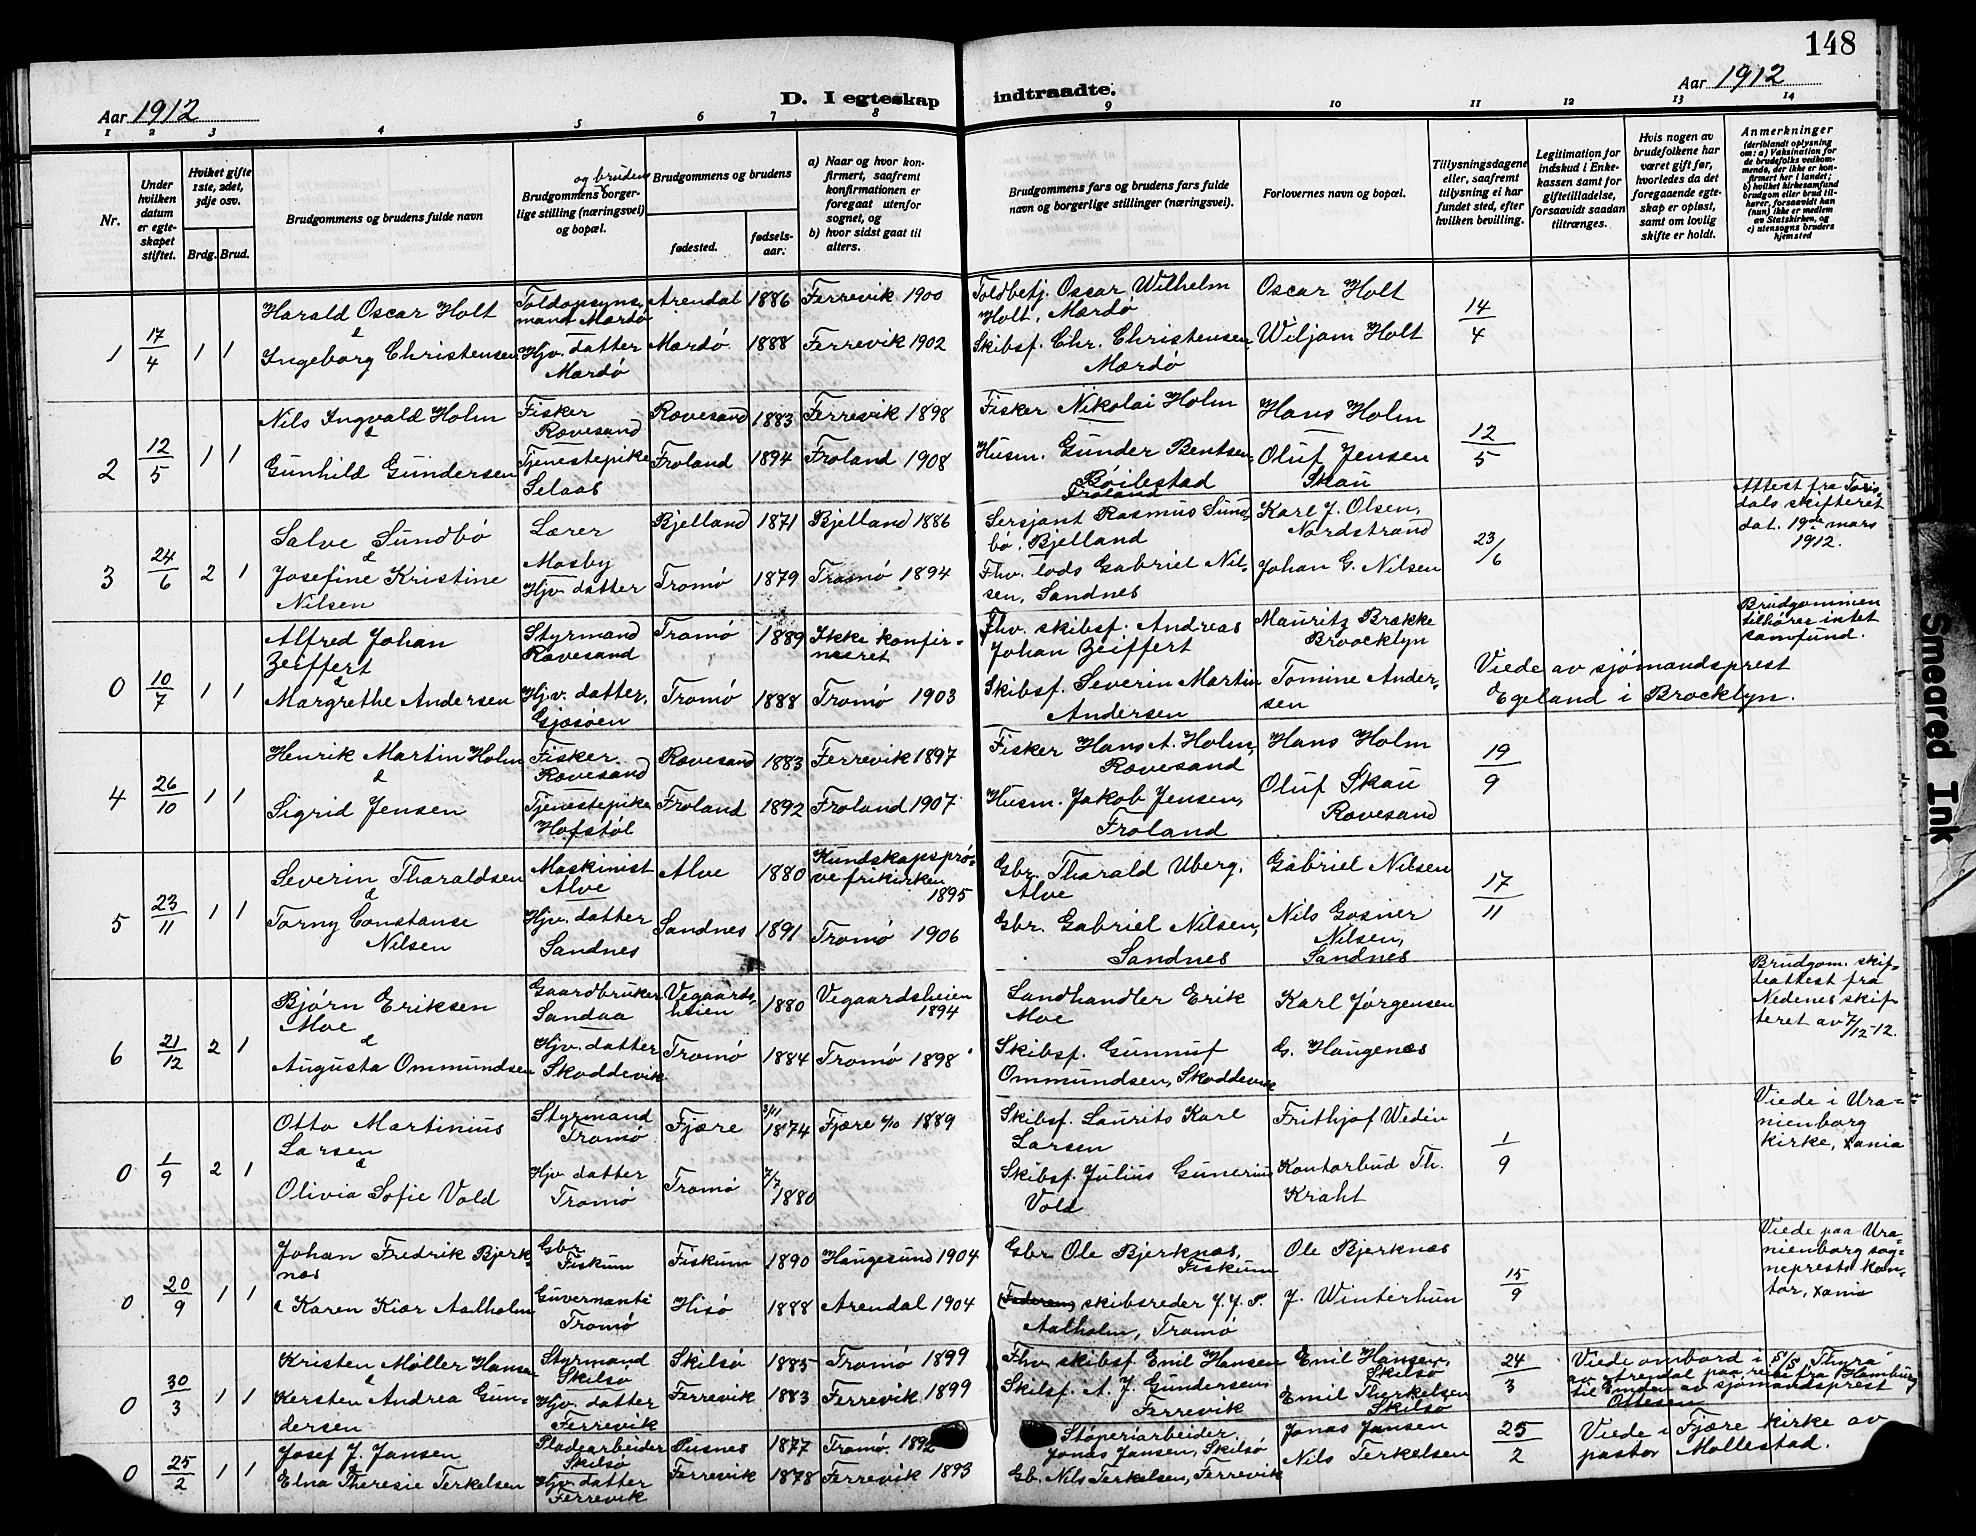 148
Aar 1912
D. I egteskap indtraadte.
Aar 1912
1 2 3 4 5 6 7 8 9 10 11 12 13 14
Nr.
Under hvilken datum er egteskapet stiftet.
Hviket gifte 1ste, 2det, 3dje osv.
Brdg. Brud.
Brudgommens og brudens fulde navn
og brudens
Brudgommens borgerlige stilling (næringsvei) og bopæl.
Brudgommens og brudens
fødested.
fødselsaar.
a) Naar og hvor konfirmert, saafremt konfirmationen er foregaat utenfor sognet, og
b) hvor sidst gaat til alters.
Brudgommens fars og brudens fars fulde navn og borgerlige stillinger (næringsvei).
Forlovernes navn og bopæl.
Tillysningsdagene eller, saafremt tillysning ei har fundet sted, efter hvilken bevilling.
Legitimation for indskud i Enkekassen samt for giftetilladelse, forsaavidt saadan tiltrænges.
Hvis nogen av brudefolkene har været gift før, hvorledes da det foregaaende egteskap er opløst, samt om lovlig skifte er holdt.
Anmerkninger
(deriblandt oplysning om: a) Vaksination for de brudefolks vedkommende, der ikke er konfirmert her i landet;
b) hvilket kirkesamfund brudgom eller brud tilhører, forsaavidt han (hun) ikke er medlem av Statskirken, og
c) utensogns bruders hjemsted
1 17/4 1 1
Harald Oscar Holt
&
Ingeborg Christensen
Toldopsynsmand Mærdø
Hjv. datter Mærdø
Arendal 1886 Færvik 1900
Mærdø 1888 Færevik 1902
Toldbetj. Oscar Wilhelm Holt, Mærdø
Skibsf. Chr. Christensen Mærdø
Oscar Holt
Wiljam Holt
14/4
2 12/5 1 1
Nils Ingvald Holm
&
Gunhild Gundersen
Fisker Rævesand
Tjenestepike Selaas
Rævesand 1883 Færevik 1898
Froland 1894 Froland 1908
Fisker Nikolai Holm
Husm. Gunder Bentsen, Bøilestad Froland
Hans Holm
Oluf Jensen Skau
12/5
3 24/6 2 1
Salve Sundbø
&
Josefine Kristine Nilsen
Lærer Mosby
Hjv. datter
Bjelland 1871 Bjelland 1886
Tromø 1879 Tromø 1894
Sersjant Rasmus Sundbø, Bjelland
Fhv. lods Gabriel Nilsen, Sandnes
Karl J. Olsen, Nordstrand
Johan G. Nilsen
23/6
Attest fra Torisdals skifteret dat. 19de mars 1912.
0 10/7 1 1
Alfred Johan Zeiffert
&
Margrethe Andersen
Styrmand Rævesand
Hjv. datter, Gjøsøen
Tromø 1889 Ikke konfirmeret
Tromø 1888 Tromø 1903
Fhv. skibsf. Andreas Johan Zeiffert
Skibsf. Severin Martin Andersen
Mauritz Brække Broocklyn
Tomine Andersen
Viede av sjømandsprest Egeland i Brocklyn.
Brudgommen tilhører intet samfund.
4 26/10 1 1
Henrik Martin Holm
&
Sigrid Jensen
Fisker Rævesand
Tjenestepike Hofstøl
Rævesand 1883 Færevik 1897
Froland 1892 Froland 1907
Fisker Hans A. Holm, Rævesand
Husm. Jakob Jensen, Froland
Hans Holm
Oluf Skau Rævesand
19/9
5 23/11 1 1
Severin Tharaldsen
&
Torny Constanse Nilsen
Maskinist Alve
Hjv. datter Sandnes
Alve 1880 Kundskapsprøve frikirken 1895
Sandnes 1891 Tromø 1906
Gbr. Tharald Uberg, Alve
Gbr. Gabriel Nilsen, Sandnes
Gabriel Nilsen
Nils Gosner Nilsen, Sandnes
17/11
6 21/12 2 1
Bjørn Eriksen Moe
&
Augusta Ommundsen
Gaardbruker Sandaa
Hjv. datter Skoddevik
Vegaardsheien 1880 Vegaardsheien 1894
Tromø 1884 Tromø 1898
Landhandler Erik Moe
Skibsf. Gunnuf Ommundsen, Skoddevik
Karl Jørgensen
G. Haugenæs
Brudgom. skifteattest fra Nedenes skifteret av 7/12-12.
0 1/9 2 1
Otto Martinius Larsen
&
Olivia Sofie Vold
Styrmand Tromø
Hjv. datter Tromø
Fjære 3/11 1874 Fjære 6/10 1889
Tromø 7/7 1880
Skibsf. Laurits Karl Larsen
Skibsf. Julius Gunerius Vold
Frithjof Wedin
Kontorbud Th. Kraht
1/9
Viede i Uranienborg kirke, Xania
0 20/9 1 1
Johan Fredrik Bjerknæs
& Karen Kiær Aalholm
Gbr. Fiskum
Guvernante Tromø
Fiskum 1890 Haugesund 1904
Hisø 1888 Arendal 1904
Gbr. Ole Bjerknæs, Fiskum
skibsreder J. J. P. Aalholm, Tromø
Ole Bjerknæs
J. Winterhun
15/9
Viede paa Uranienborg sogneprests kontor, Xania
0 30/3 1 1
Kristen Møller Hansen
&
Kersten Andrea Gundersen
Styrmand Skilsø
Hjv. datter Færevik
Skilsø 1885 Tromø 1899
Færevik 1883 Færevik 1899
Fhv. skibsf. Emil Hansen
Skibsf. A. J. Gundersen, Færevik
Emil Hansen, Skilsø
Emil Therkelsen Skilsø
24/3
Viede ombord i S/S "Thyra" av Arendal paa reise fra Hamburg til Emden av sjømandsprest Ottesen
0 25/2 1 1
Josef J. Jansen
&
Elna Theresie Terkelsen
Pladearbeider Skilsø
Hjv. datter Færevik
Pusnes 1877 Tromø 1892
Færevik 1878 Færevik 1893
Støperiarbeider Jonas Jansen, Skilsø
Gb. Nils Terkelsen, Færevik
Jonas Jansen
Nils Terkelsen
25/2
Viede i Fjære kirke av pastor Mollestad.
Smeared Ink